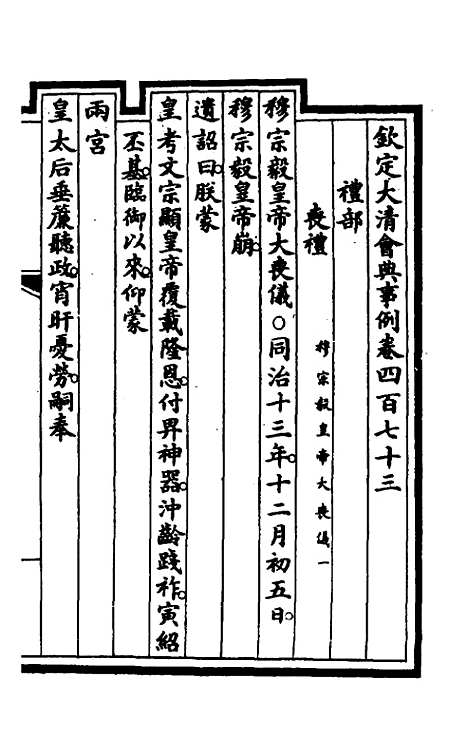 欽定大清會典事例卷四百七十三
禮部
喪禮 穆宗毅皇帝大喪儀一
穆宗毅皇帝大喪儀○同治十三年。十二月初五日。
穆宗毅皇帝崩。
遺詔曰。朕蒙
皇考文宗顯皇帝覆載隆恩。付畀神器。沖齡踐祚。寅紹
丕基。臨御以來。仰蒙
兩宮
皇太后垂簾聽政。宵旰憂勞。嗣奉